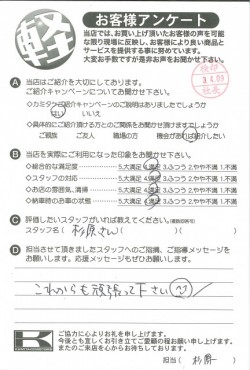 軽
お客様アンケート
当店では、お買い上げ頂いたお客様の声を可能
な限り現場に反映し、お客様により良い商品と
サービスを提供する事に努めています。
大変お手数ですが是非お声をお聞かせ下さい。
社長
A 当店はご紹介を大切にしております。
ご紹介キャンペーンについてお聞かせ下さい。
◇カミタケご紹介キャンペーンのご説明はありましたでしょうか
はい いいえ
◇具体的にご紹介頂ける方とのご関係をお聞かせ頂けますでしょうか
ご親族 ご友人 職場の方 機会があれば紹介したい
B 当店を実際にご利用になった印象をお聞かせ下さい。
◇総合的な満足度 5.大満足 4.満足 3.ふつう 2.やや不満 1.不満
◇スタッフの対応 5.大満足 4.満足 3.ふつう 2.やや不満 1.不満
◇お店の雰囲気、清掃 5.大満足 4.満足 3.ふつう 2.やや不満 1.不満
◇納車時のお車の状態 5.大満足 4.満足 3.ふつう 2.やや不満 1.不満
C 評価したいスタッフがいれば教えてください。(複数回答可)
スタッフ名( 杉原さん )( )
D 担当させて頂きましたスタッフへのご指摘、ご指導メッセージを
お願いします。応援メッセージもぜひお願いします。
これからも頑張って下さい
K
ご協力に心よりお礼を申し上げます。
今後とも宜しくお引き立てご愛顧の程お願い申し上げます。
またのご来店を心からお待ちしております。
担当( 杉原 )